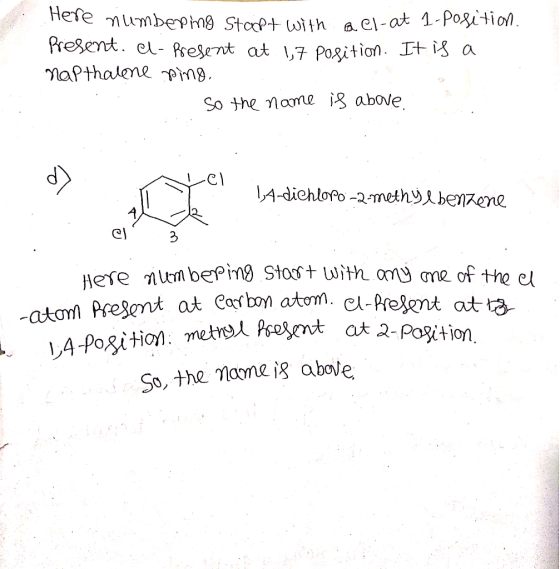 Here numbering start with a Cl-at 1-Position.
Present. Cl- Present at 1,7 Position. It is a
napthalene ring.
So the name is above.
d)
1
Cl
4
2
Cl
3
1,4-dichloro-2-methylbenzene
Here numbering start with any one of the cl
-atom Present at Carbon atom. Cl-Present at
1,4-Position. methyl Present at 2-Position.
So, the name is above.